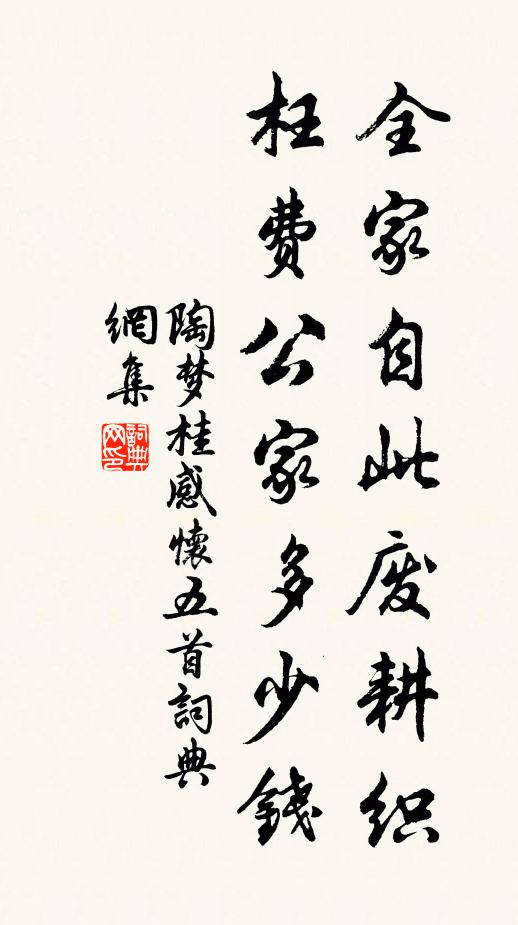 全家自此废耕织
枉费公家多少錢
陶梦桂感懷五首詞典
網集
詞典
网印